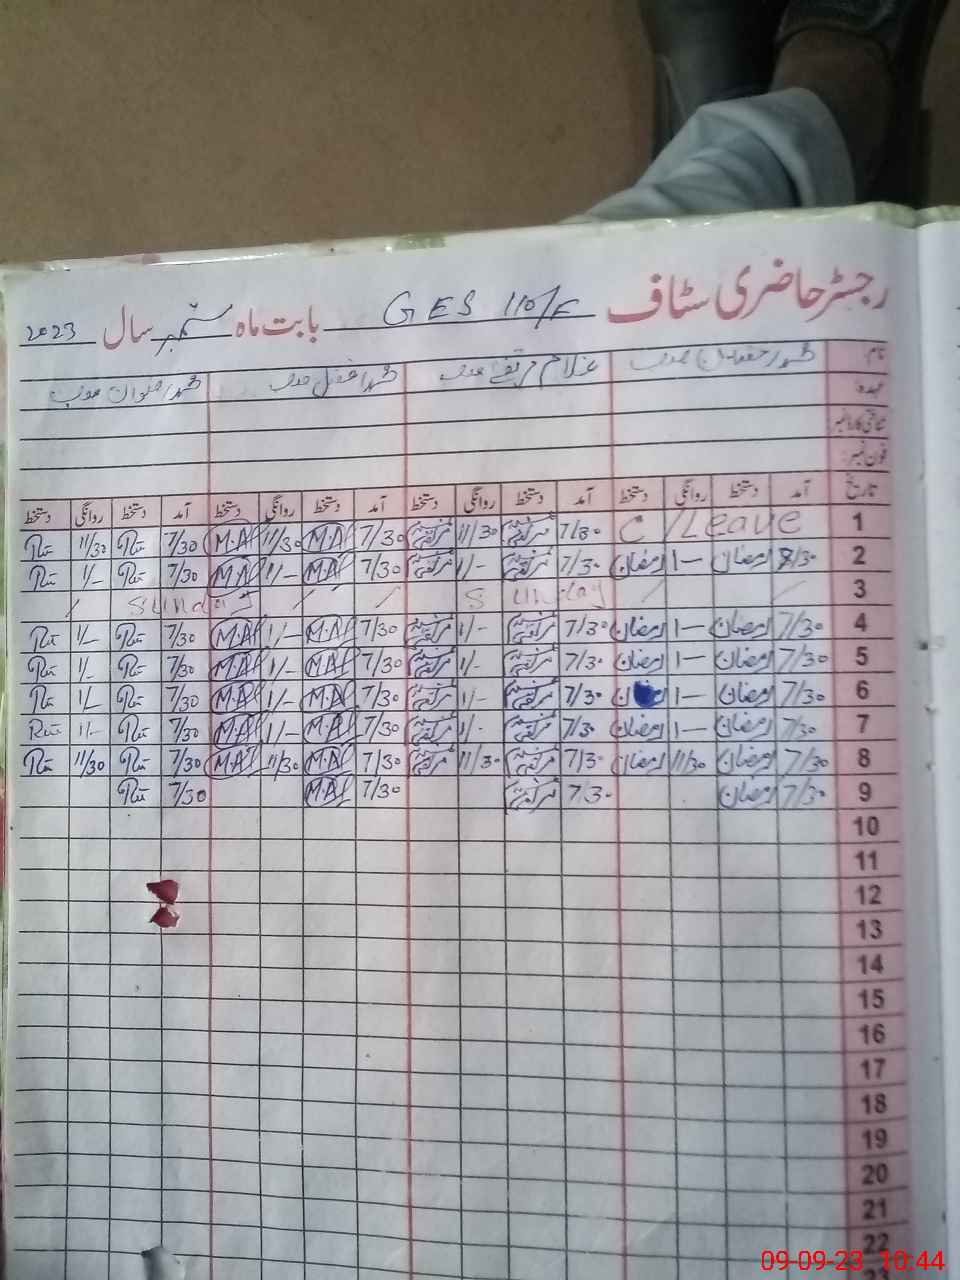 رجسٹر حاضری سٹاف GES 110/F بابت ماہ ستمبر سال 2023
نام: محمد رمضان صاحب غلام مرتضیٰ صاحب محمد افضل صاحب محمد رضوان صاحب
عہدہ:
شناختی کارڈ نمبر
فون نمبر:
تاریخ آمد دستخط روانگی دستخط آمد دستخط روانگی دستخط آمد دستخط روانگی دستخط آمد دستخط روانگی دستخط
1 C/Leave 7/30 مرتضیٰ 11/30 مرتضیٰ 7/30 M.Af 11/30 M.Af 7/30 11/30
2 8/30 رمضان 1— رمضان 7/30 مرتضیٰ 1/- مرتضیٰ 7/30 M.Af 1/- M.Af 7/30 1/-
3 Sunday Sunday
4 7/30 رمضان 1— رمضان 7/30 مرتضیٰ 1/- مرتضیٰ 7/30 M.Af 1/- M.Af 7/30 1/-
5 7/30 رمضان 1— رمضان 7/30 مرتضیٰ 1/- مرتضیٰ 7/30 M.Af 1/- M.Af 7/30 1/-
6 7/30 رمضان 1— 7/30 مرتضیٰ 1/- مرتضیٰ 7/30 M.Af 1/- M.Af 7/30 1/-
7 7/30 رمضان 1— رمضان 7/30 مرتضیٰ 1/- مرتضیٰ 7/30 M.Af 1/- M.Af 7/30 1/-
8 7/30 رمضان 11/30 رمضان 7/30 مرتضیٰ 11/30 مرتضیٰ 7/30 M.Af 11/30 M.Af 7/30 11/30
9 7/30 رمضان 7/30 مرتضیٰ 7/30 M.Af 7/30
10
11
12
13
14
15
16
17
18
19
20
21
22
09-09-23 10:44